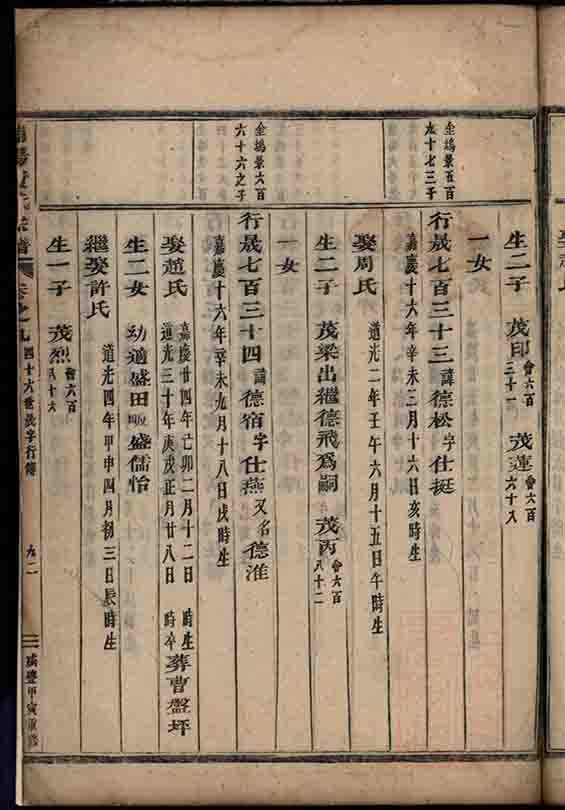 生二子 茂印 會六百三十一 茂蓮 會六百六十八
一女
金塢景五百九十七三子
行晟七百三十三 諱德松字仕挺
嘉慶十六年辛未二月十六日亥時生
娶周氏 道光二年壬午六月十五日午時生
生二子 茂梁出繼德飛爲嗣 茂丙 會六百八十二
一女
金塢景六百六十六之子
行晟七百三十四 諱德宿字仕燕又名德淮
嘉慶十六年辛未九月十八日戌時生
娶趙氏 嘉慶廿四年己卯二月十二日 時生
道光三十年庚戌正月廿八日 時卒 葬曹盤坪
生二女 幼適盛田畈盛儒怡
繼娶許氏 道光四年甲申四月初三日辰時生
生一子 茂烈 會六百八十六
氏宗譜 卷之九 四十六世晟字行傳 九二 咸豐甲寅重修